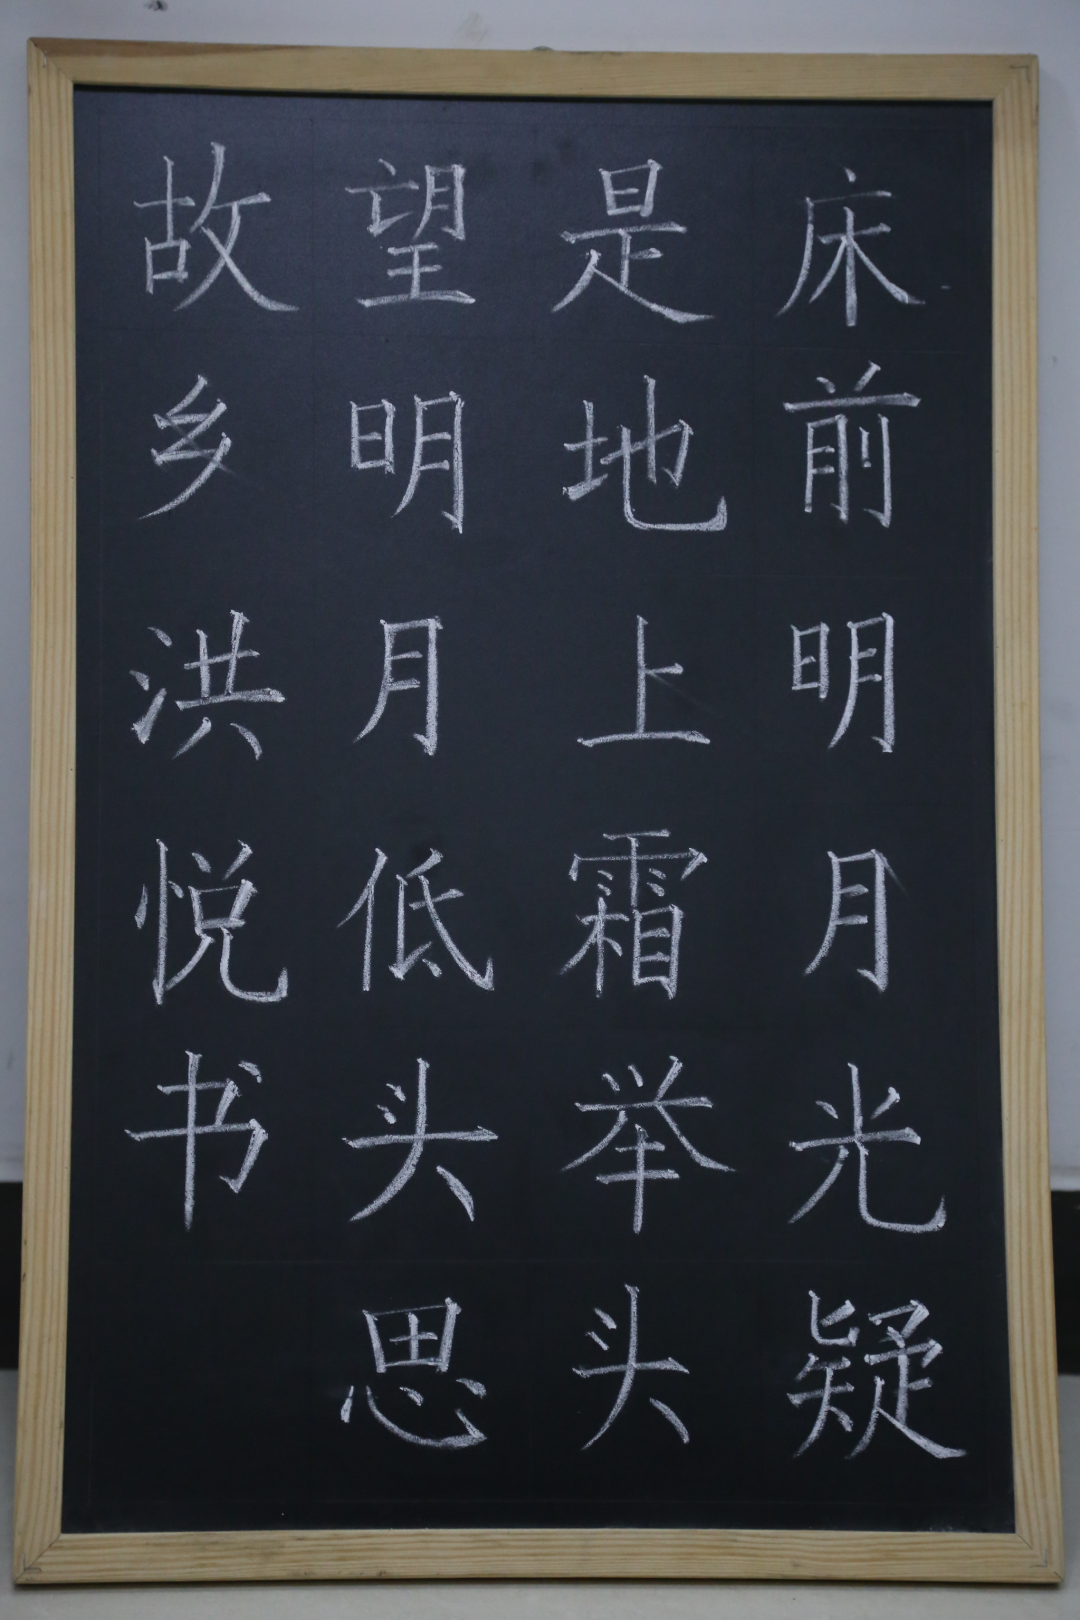 床前明月光疑
是地上霜举头
望明月低头思
故乡洪悦书